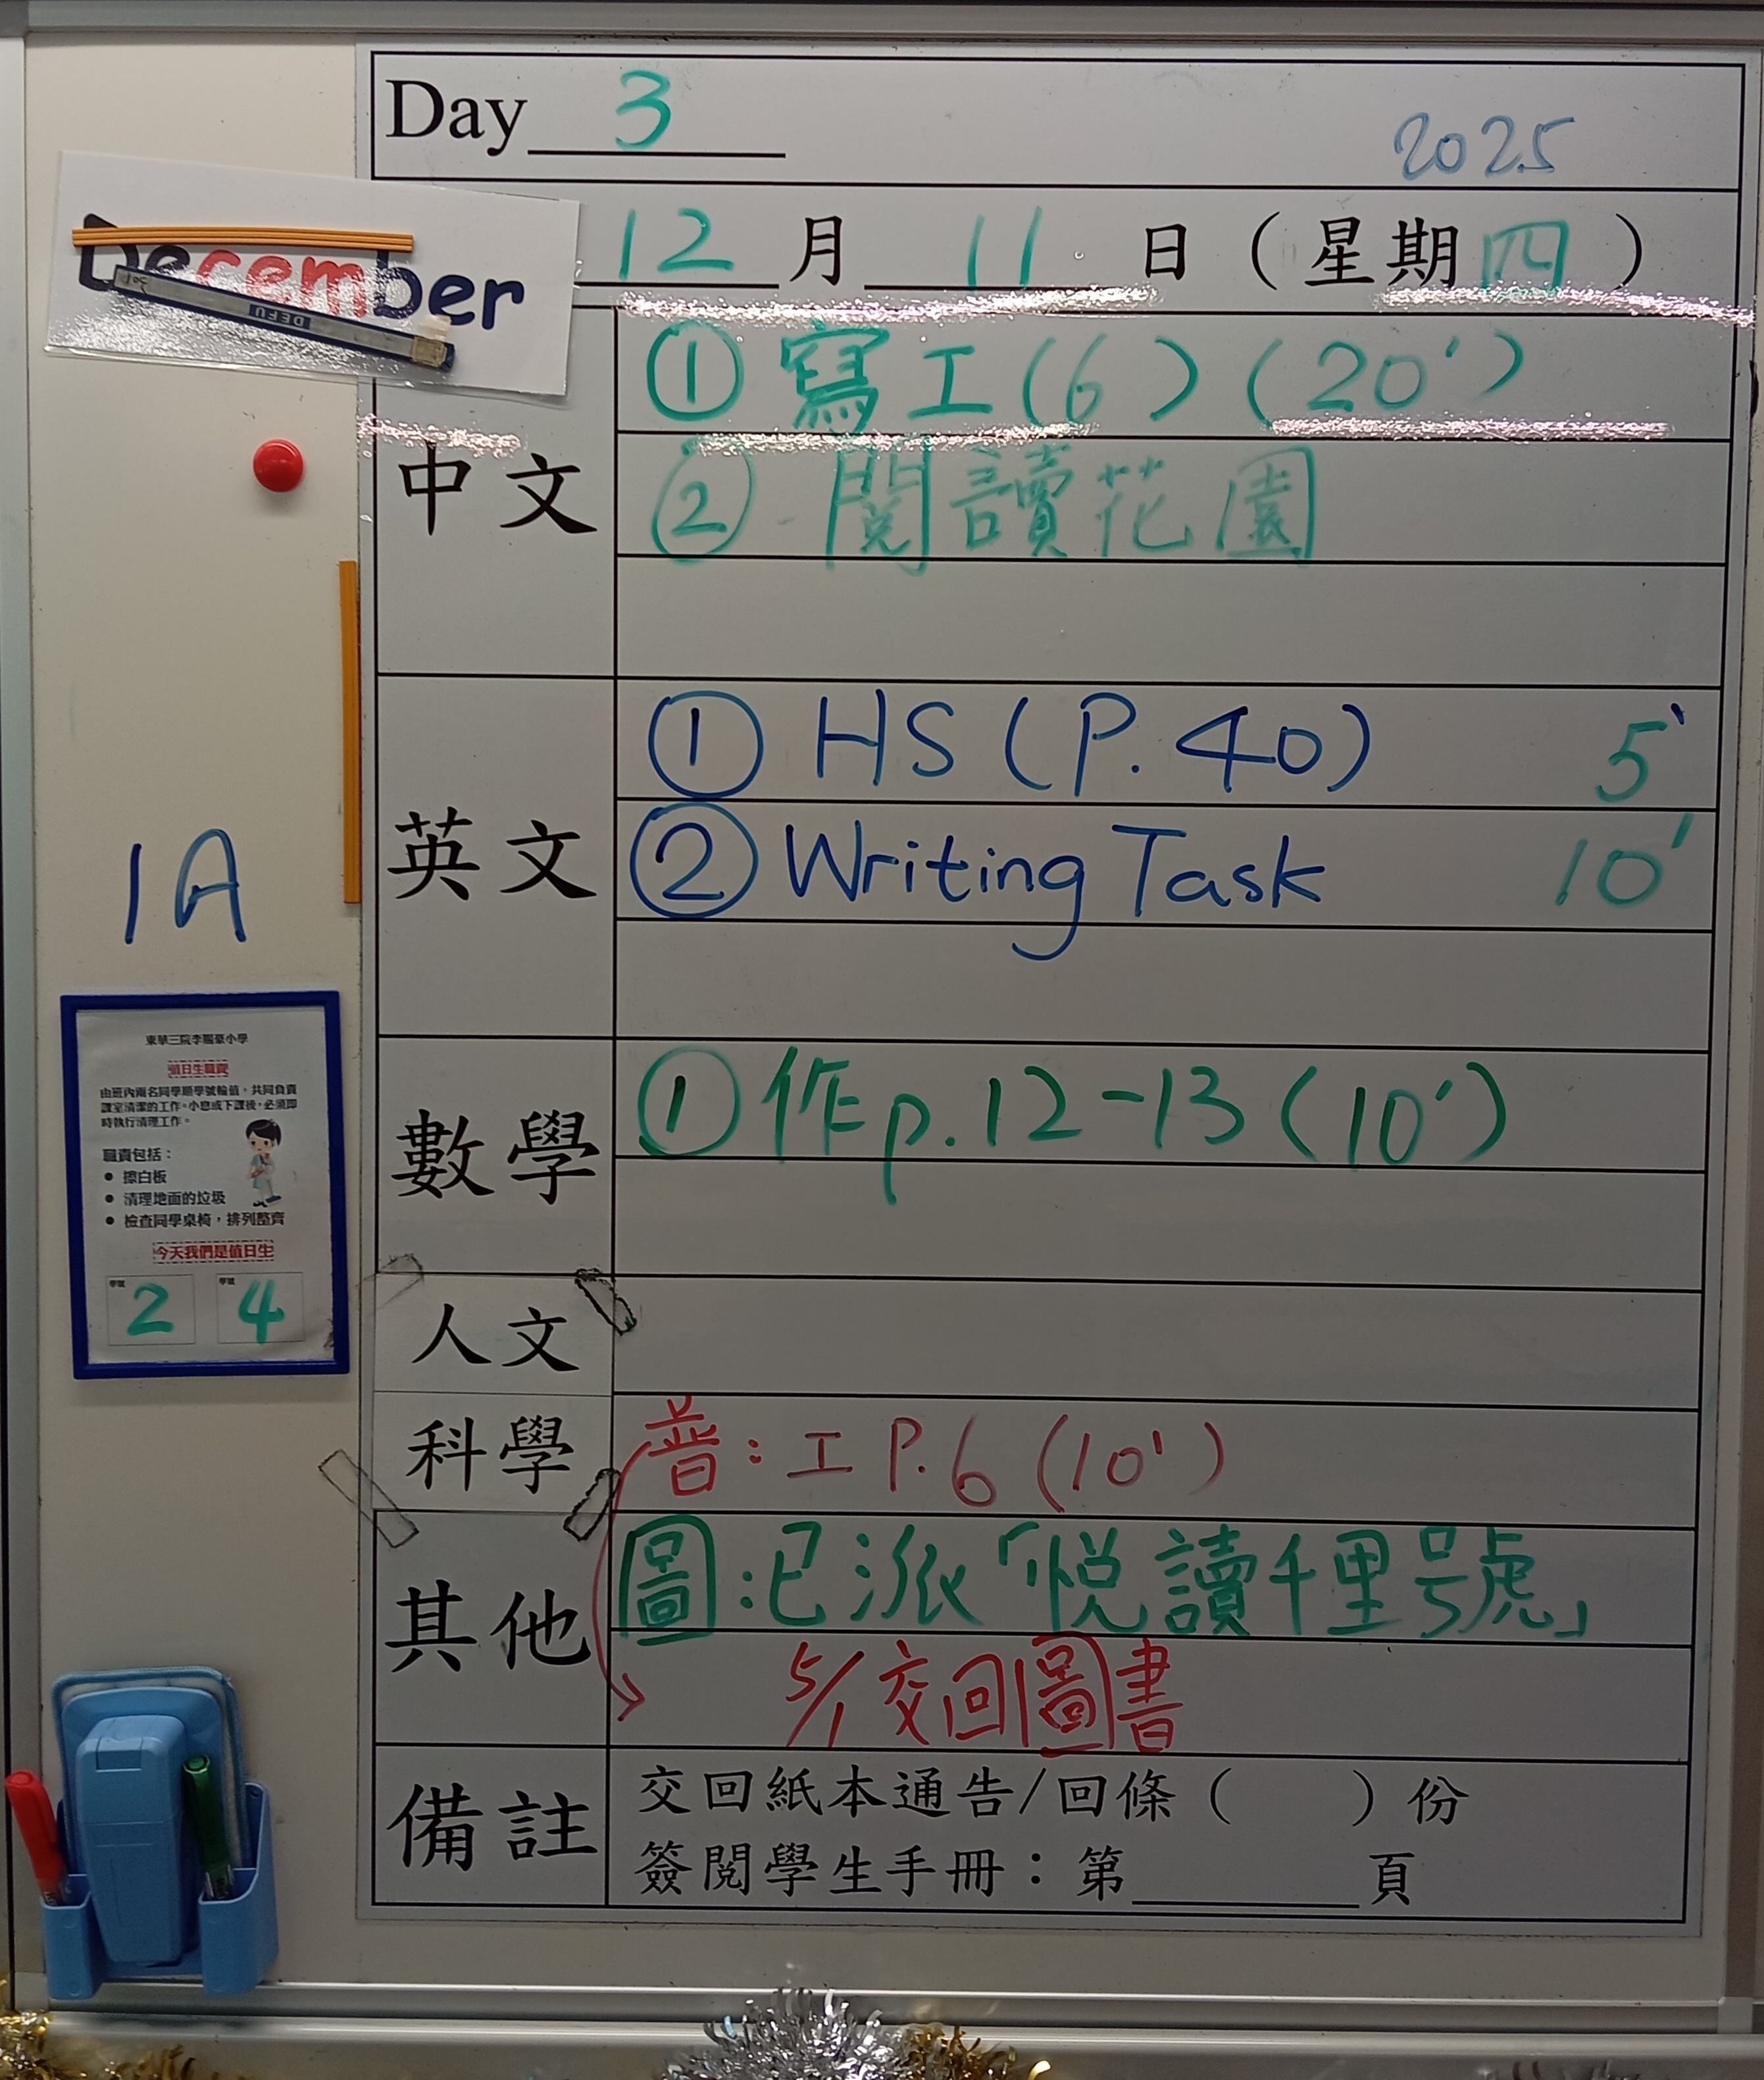 Day 3 2025
December
12 月 11 日 (星期四)
中文
① 寫工(6) (20')
② 閱讀花園
英文
① HS (P.40) 5'
② Writing Task 10'
1A
數學
① 作p.12-13 (10')
人文
科學
普:工 P.6 (10')
其他
圖:已派「悅讀千里號」
5/1 交回圖書
備註
交回紙本通告/回條( )份
簽閱學生手冊:第 頁
東華三院李賜豪小學
值日生職責
由班內兩名同學順學號輪值,共同負責
課室清潔的工作。小息或下課後,必須即
時執行清理工作。
職責包括:
● 擦白板
● 清理地面的垃圾
● 檢查同學桌椅,排列整齊
今天我們是值日生
學號 學號
2 4
DEFU